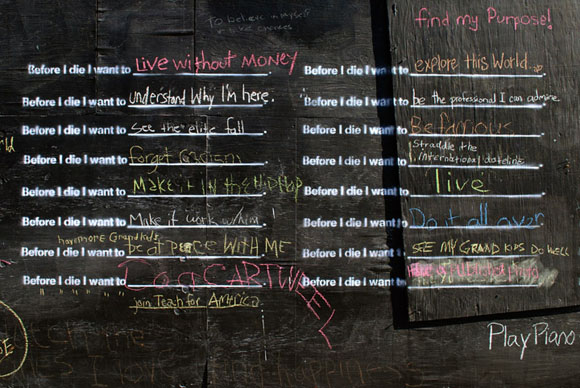 To believe in myself
find my Purpose!
Before I die I want to Live without MONEY
Before I die I want to understand Why I'm here.
Before I die I want to see the elite fall
Before I die I want to forget
Before I die I want to MAKE IT IN the HIPHOP
Before I die I want to Make it work w/him
have more Grandkids
Before I die I want to be at peace WITH ME
Before I die I want to Do a CARTWHEEL
join Teach for AMERICA
Before I die I want to explore this World.
Before I die I want to be the professional I can admire.
Before I die I want to Be famous
Straddle the
Before I die I want to International dateline
Before I die I want to live
Before I die I want to Do it all over
Before I die I want to SEE MY GRAND KIDS DO WELL
Before I die I want to
Play Piano